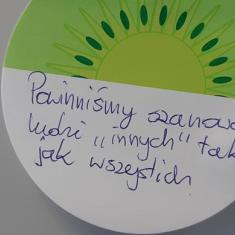 Powinniśmy szanowa
ludzi "innych" tak
jak wszystich